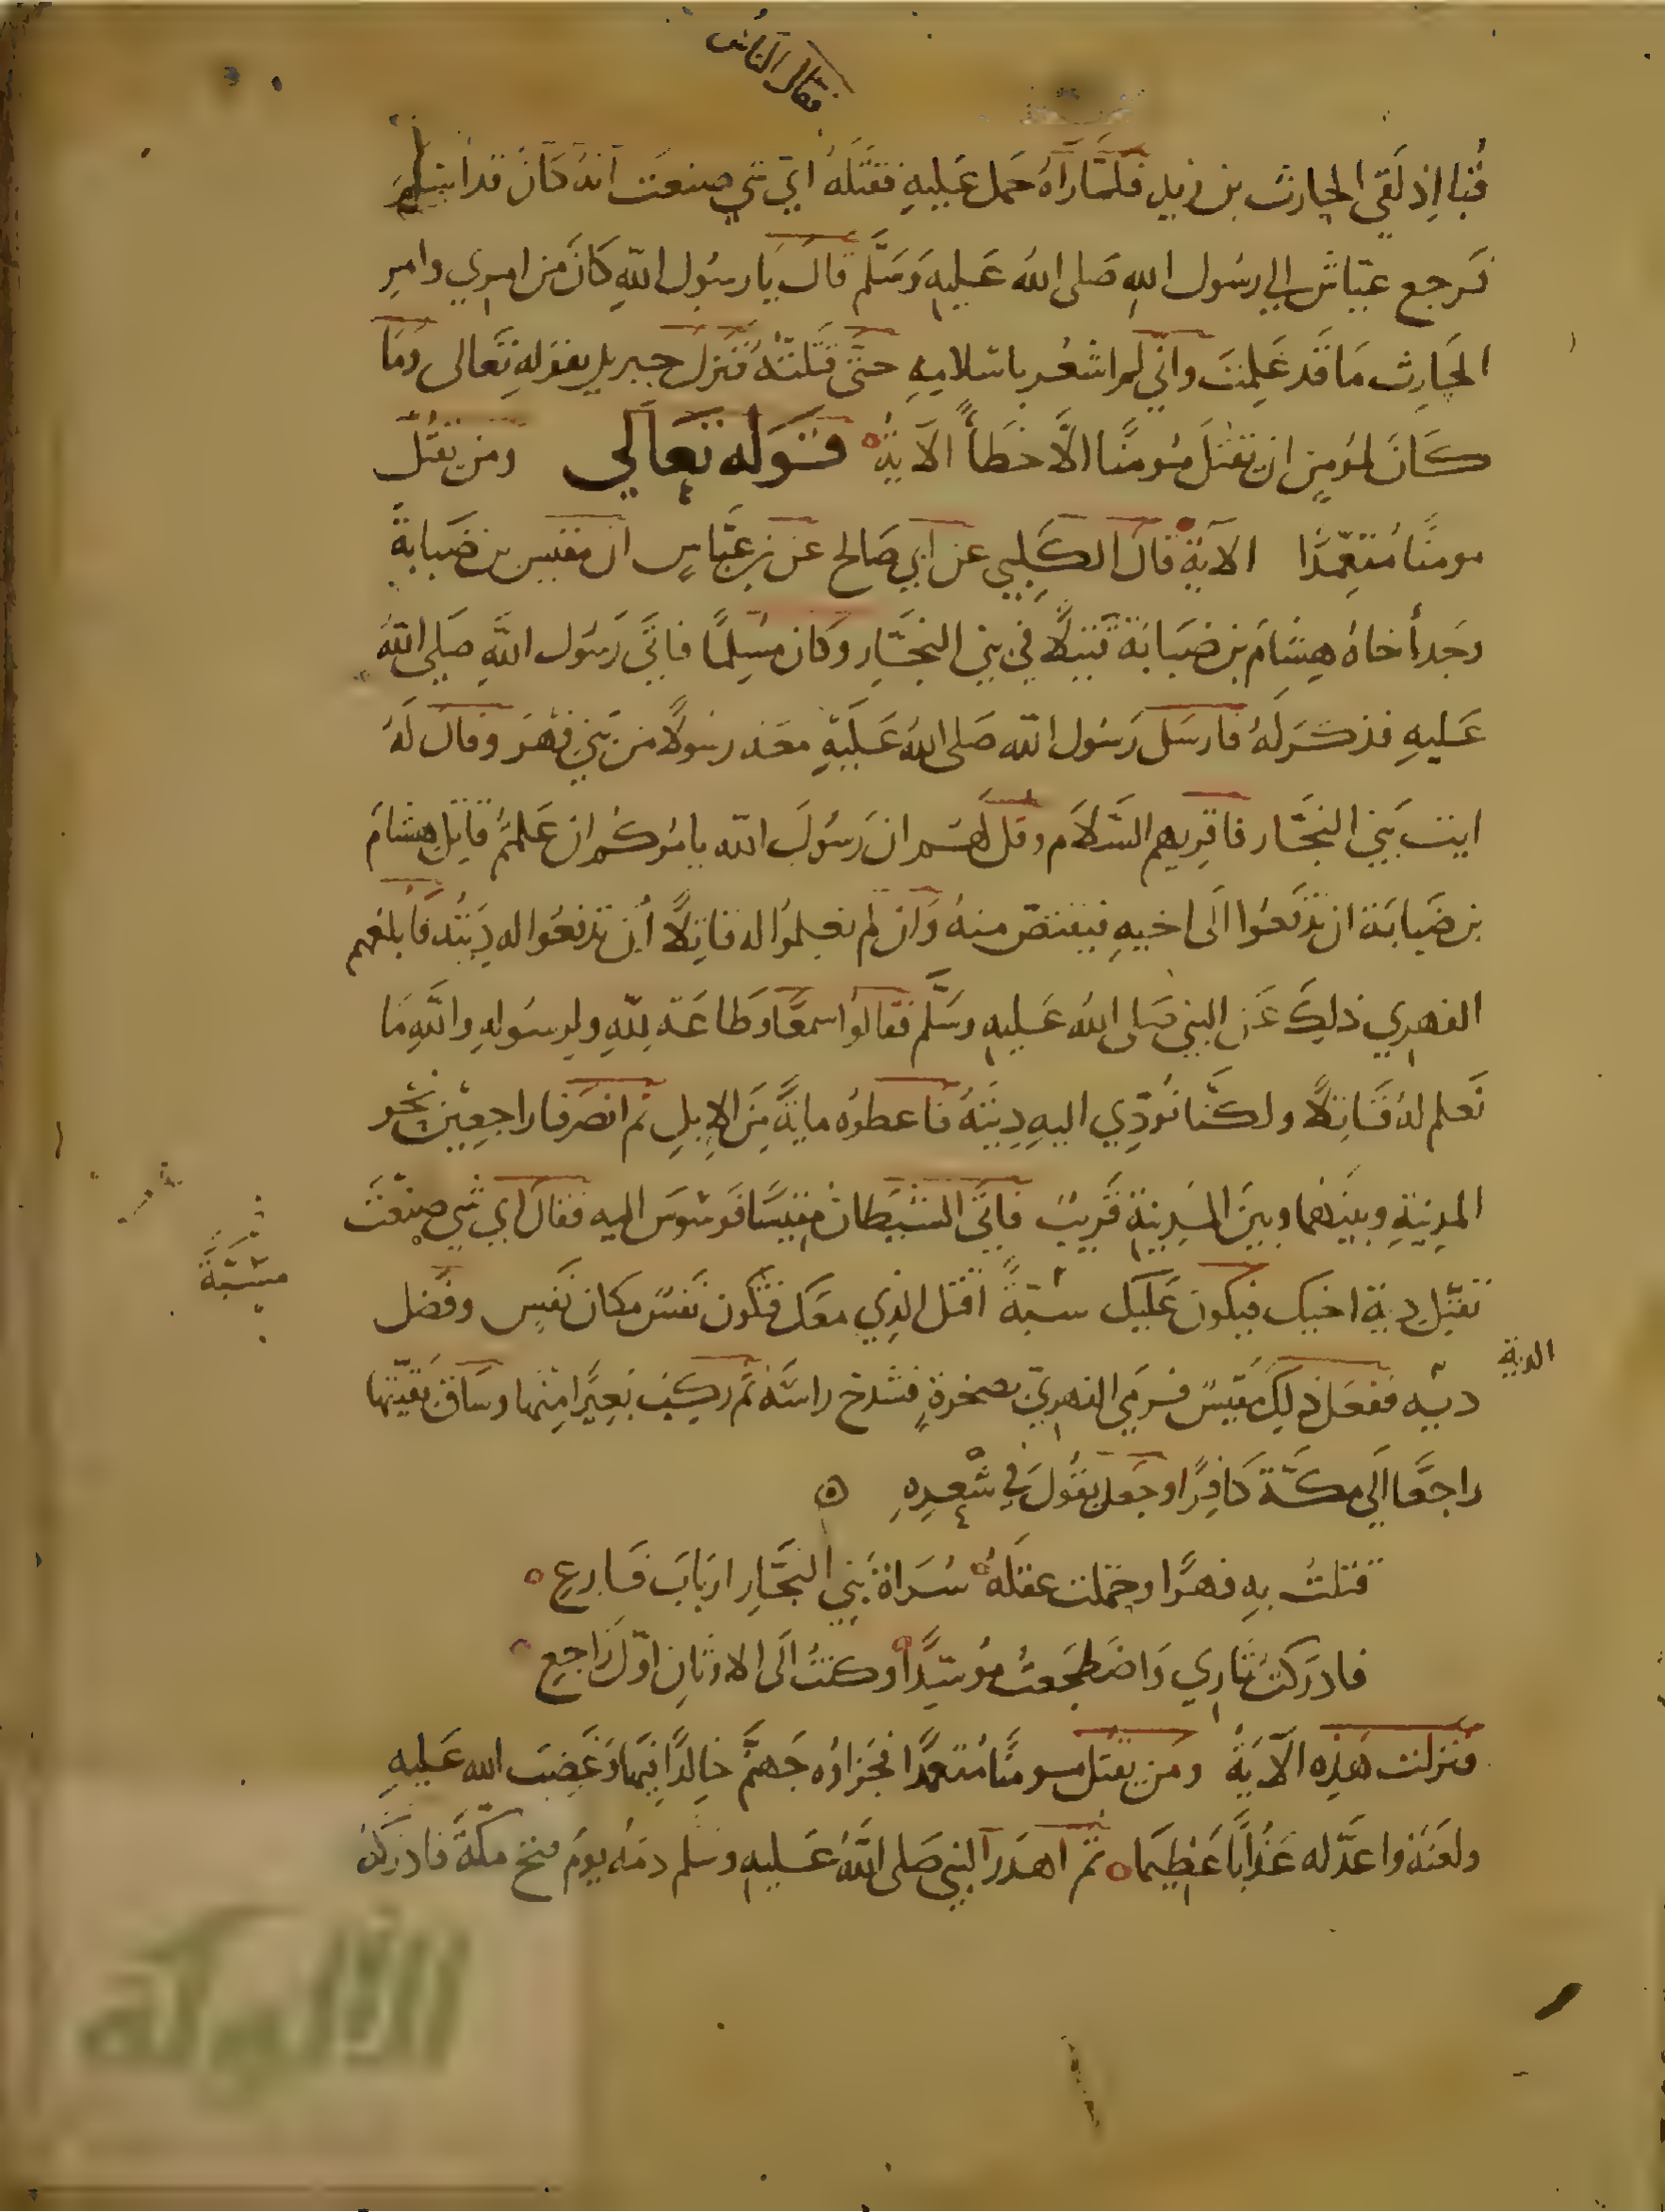 فقال الناس
قبا اذ لقي الحارث بن زيد فلمّا رآهُ حمل عَليهِ فقتَلَهُ ايّ شي صنعتَ انهُ كَانَ قد اسلم
فرجع عيّاش الي رسُول الله صَلى اللهُ عَليهِ وَسَلَّم قالَ يَا رسُول اللهِ كَانَ مِن امري وامرِ
الحَارِث مَا قَد عَلِمتَ وانّي لم اشعُر باسلامِهِ حتَّى قتَلتُهُ فنَزلَ جبريل بقولهِ تَعالى وَمَا
كَانَ لمُؤمِنٍ ان يَقتلَ مُومنًا الَّا خَطأً الآيةُ قَولُه تَعَالي ومَن يَقتُل
مومنًا مُتعمِّدًا الآيةَ قالَ الكَلِبي عن ابي صَالح عن بن عبّاسٍ ان مقيس بن ضَبابةَ
وجَدَ أخاهُ هِشامَ بن ضَبَابَة قتيلًا في بني النجّارِ وَكان مُسِلمًا فاتَى رَسُول اللهِ صَلى اللهُ
عَليهِ فذكَرَ لَهُ فارسَل رَسُول الله صَلى اللهُ عَليَهِ معَهُ رسُولًا من بَني فهرَ وقالَ لهُ
ايت بَني النجَّار فاقرِيهم السَّلامَ وقل لهُم ان رَسُولَ الله يامُركُم ان عَلمتُم قاتِل هشامَ
بن ضَبابَة ان تَدفَعُوا الَى اخيهِ فيقتصّ منهُ وَان لم تعلمُوا له قاتِلًا أن تدفعُوا له دِيَتُه فابلغهم
الفهري ذلِكَ عَن النبي صَلى اللهُ عَليهِ وسَلَّم فقالُوا سمعًا وَطاعَةً للّهِ ولرسُولهِ واللّهِ مَا
نَعلم لهُ قَاتِلًا ولكنَّا نُودّي اليهِ دِيتَهُ فاعطوُه مايةً مِنَ الإبلِ ثم انصَرفا راجعِيَن نحو
المدِينةِ وبينهُما وبينَ المدِينةِ قريبُ فاتَى الشيطانُ مقيسًا فوسَوسَ اليه فقال اي شي صنعتَ
تقبل دية اخيك فيكون عَليك سُبّةً اقتل الذي معَك فتكُون نَفسٌ مكان نَفسٍ وفَضل
مسَبَّةً
الدية
ديه ففعَل ذلِك مقيسٌ فرمَي الفهريّ بصخرةٍ فشدخ راسَهُ ثم ركِبَ بَعِيرًا مِنها وسَاقَ بَقيتها
راجعًا الَي مكّة كَافرًا وجَعل يقُولُ في شِعرِهِ
قتلتُ بهِ فهرًا وحمّلت عَقلَهُ سُرَاةَ بَني النجَّارِ اربَابَ فَارعِ
فادركتُ ثاري وَاضطجعتُ مُوسّدًا وكنتُ الَى الاوثَانِ اوّلَ رَاجعِ
فنزلت هَذِه الآيَةُ ومَن يَقتُل مومنًا مُتعمدًا فجَزاؤه جَهنّم خالِدًا فيهَا وَغَضِبَ الله عَليهِ
ولعَنَهُ واعَدَّ له عَذابًا عَظِيمًا ثم اهدَر النبي صَلى اللهُ عَليهِ وسَلم دمَهُ يومَ فتح مكّةَ فادركهُ
الألوكة